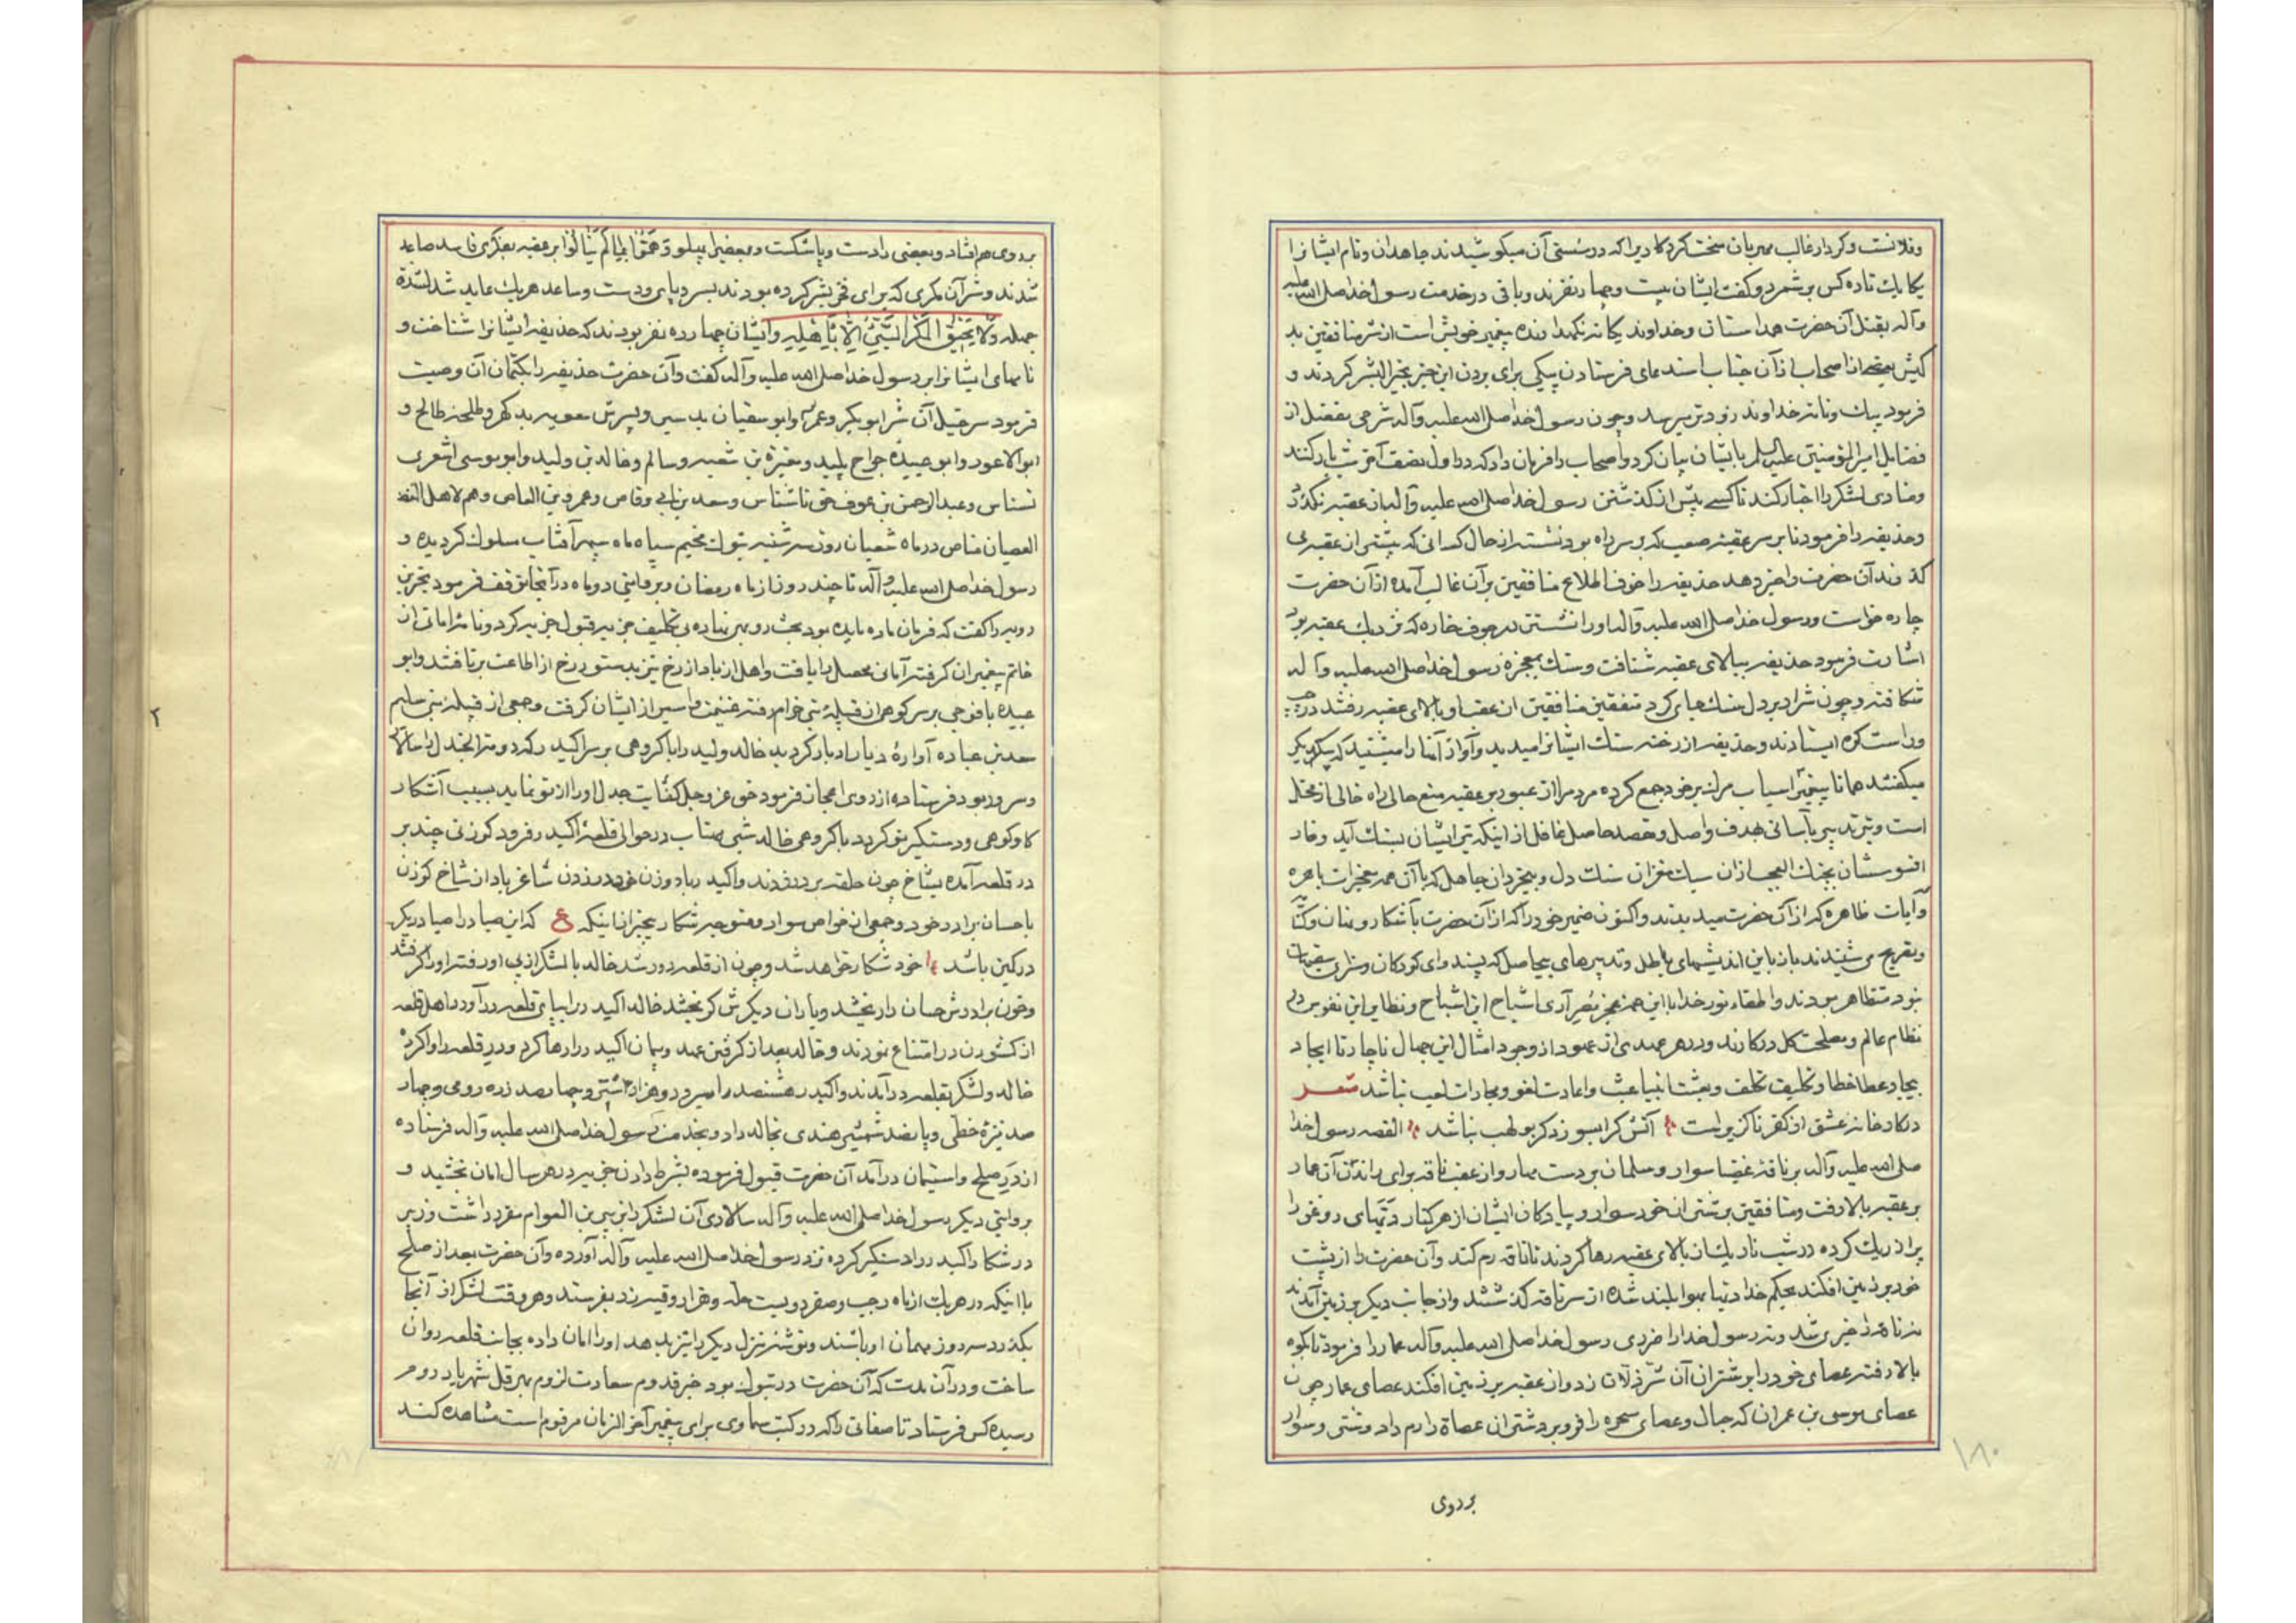 وفلانست و کردار غالب مهربان سخت کرد کار دیرا که در سستی آن میکوشیدند جاهدان و نام ایشانرا
یکایک تا ده کس برشمرد و کفت ایشان بیست و چهار نفرند و باقی در خدمت رسول خدا صلی الله علیه
وآله بقتل آن حضرت همداستان و خداوند یکانه نکهدارنده پیغمبر خویش است از شر منافقین بد
کیش بعضی از اصحاب از آن جناب استدعای فرستادن پیکی برای بردن این خبر بخیر البشر کردند و
فرمود پیک و نامه خداوند زودتر میرسد و چون رسول خدا صلی الله علیه وآله شرحی مفصل از
فضایل امیر المؤمنین علیه السلم با ایشان بیان کرد و اصحاب را فرمان داد که در اول نصف آخر شب بار کنند
و منادی لشکر را اخبار کند تا کسی پیش از کذشتن رسول خدا صلی الله علیه وآله از آن عقبه نکذرد
و حذیفه را فرمود تا بر سر عقبه صعب که بر سر راه بود نشسته از حال کسانی که پیش از عقبه می
کذرند آن حضرت را خبر دهد حذیفه را خوف اطلاع منافقین بر آن غالب آمده از آن حضرت
چاره خواست و رسول خدا صلی الله علیه وآله او را نشستن در جوف خاره که نزدیک عقبه بود
اشارت فرمود حذیفه ببالای عقبه شتافت و سنک بمعجزه رسول خدا صلی الله علیه وآله
شکافته و چون شرار در دل سنک جای کرد متفقین منافقین از عقب او ببالای عقبه رفتند در چپ
و راست کوه ایستادند و حذیفه از رخنه سنک ایشانرا میدید و آواز آنها را میشنید که بیکدیکر
میکفتند همانا پیغمبر اسباب مرک بر خود جمع کرده مردم را از عبور بر عقبه منع حالی راه خالی از مختل
است و تیر تدبیر بآسانی بهدف واصل و مقصد حاصل غافل از اینکه تیر ایشان بسنک آید و فار
افسوسشان بچنک العجب از آن سبک مغزان سنک دل و بیخردان جاهل که با آن همه معجزات باهره
و آیات ظاهره که از آن حضرت میدیدند و اکنون ضمیر خود را که از آن حضرت بآشکار و نهان و کنایه
و تصریح می شنیدند باز باین اندیشهای باطل و تدبیرهای بیحاصل که پسند رای کودکان و سزای
بود متظاهر بودند و اطفاء نور خدا با این همه عجز
نظام عالم و مصلحت کل در کارند و در هر عهدی از عهود از وجود امثال این جهال ناچار تا ایجاد
بیجا و عطا خطا و تکلیف تخلف و بعثت انبیا عبث و اعادت لغو و مجازات لعب نباشد شعر
در کارخانه عشق از کفر ناکزیر است آتش کرا بسوزد کر بو لهب نباشد القصه رسول خدا
صلی الله علیه وآله بر ناقه غضبا سوار و سلمان بر دست مهار و از عقب ناقه برای راندن آن عمار
بر عقبه بالا رفت و منافقین بر شتران خود سوار و پیادکان ایشان از هر کنار دبهای روغن را
پر از ریک کرده در شب تاریک از بالای عقبه رها کردند تا ناقه رم کند و آن حضرت را از پشت
خود بر زمین افکند بحکم خدا دبها بهوا بلند شده از سر ناقه کذشتند و از جانب دیکر بر زمین آمدند
نه ناقه را خبری شد و نه رسول خدا را ضرری رسول خدا صلی الله علیه وآله عمار را فرمود تا بکوه
بالا رفته عصای خود را بر شتران آن شرذله زد و از عقبه بر زمین افکند عصای عمار چون
عصای موسی بن عمران که حبال و عصای سحره را فرو برد شتران عصاة را رم داد و شتی و سوار
بر روی
۱۸۰
بر روی هم افتاد و بعضی را دست و پا شکست و بعضی را پهلو وَهَمُّوا بِمَا لَمْ یَنَالُوا بر عقبه بفکری فاسد صاعد
شدند و شر آن مکری که برای فخر بشر کرده بودند بسر و پای و دست و ساعد هر یک عاید شد لشدة
جمله وَلَا یَحِیقُ الْمَکْرُ السَّیِّئُ إِلَّا بِأَهْلِهِ و ایشان چهارده نفر بودند که حذیفه ایشانرا شناخت و
نامهای ایشانرا بر رسول خدا صلی الله علیه وآله کفت و آن حضرت حذیفه را بکتمان آن وصیت
فرمود سرخیل آن شر ابوبکر و عمر و ابو سفیان بد سیر و پسرش معویه بد کهر و طلحه طالح و
ابو الاعور و ابو عبیده جراح پلید و مغیرة بن شعبه و سالم و خالد بن ولید و ابو موسی اشعری
نسناس و عبد الرحمن بن عوف حق ناشناس و سعد بن ابی وقاص و عمرو بن العاص و هم لاهل
العصیان مناص در ماه شعبان روز سه شنبه تبوک مخیم سپاه ماه سپهر آفتاب سلوک کردیده و
رسول خدا صلی الله علیه وآله تا چند روز از ماه رمضان و بروایتی دو ماه در آنجا توقف فرمود
خاتم پیغمبران کرفته
عبیده با فوجی بر سر کوهی از قبیله بنی خزام رفته غنیمت و اسیر از ایشان کرفت و جمعی از قبیله بنی سلیم
سعد بن عباده آواره دیار ادبار کردید خالد ولید را با کروهی بر سر اکیدر که در دومة الجندل
و سرور بود فرستاده از روی اعجاز فرمود حق عز و جل کفایت جدل او را از تو نماید بسبب آشکار
کاو کوهی و دستکیر تو کردد با کروهی خالد شبی مهتاب در حوالی قلعه اکیدر فرود کوزنی چند بر
در قلعه آمده بشاخ چون حلقه بر در زدند و اکیدر
با حسان برادر خود و جمعی از خواص سوار و متوجه شکار بیخبر از اینکه ع که این صیاد را صیاد دیکر
در کمین باشد خود شکار خواهد شد و چون از قلعه دور شد خالد با لشکر از پی او رفته او را کرفتند
و خون برادرش حسان را ریختند و یاران دیکرش کریختند خالد اکیدر را بپای قلعه در آورد اهل قلعه
از کشودن در امتناع نمودند و خالد بعد از کرفتن عهد و پیمان اکیدر را رها کرد و در قلعه را وا کرده
خالد و لشکر بقلعه در آمدند و اکیدر هشتصد اسیر و دو هزار اشتر و چهار صد زره رومی و چهار
صد نیزه خطی و پانصد شمشیر هندی بخالد داد و بخدمت رسول خدا صلی الله علیه وآله فرستاده
از در صلح و استیمان در آمد آن حضرت قبول فرموده بشرط دادن جزیه در هر سال امان بخشید و
بروایتی دیکر رسول خدا صلی الله علیه وآله سالاری آن لشکر را بزبیر بن العوام مقرر داشت و زبیر
در شکار اکیدر را دستکیر کرده نزد رسول خدا صلی الله علیه وآله آورده و آن حضرت بعد از صلح
با اینکه در هر یک از ماه رجب و صفر دویست حله و هزار وقیه زر بفرستد و هر وقت لشکر از آنجا
بکذرد سه روز مهمان او باشند و توشه منزل دیکر را نیز بدهد او را امان داده بجانب قلعه روان
ساخت و در آن مدت که آن حضرت در تبوک بود خبر قدوم سعادت لزوم بهرقل شهریار روم
رسیده کس فرستاد تا صفاتی را که در کتب سماوی برای پیغمبر آخر الزمان مرقوم است مشاهده کند